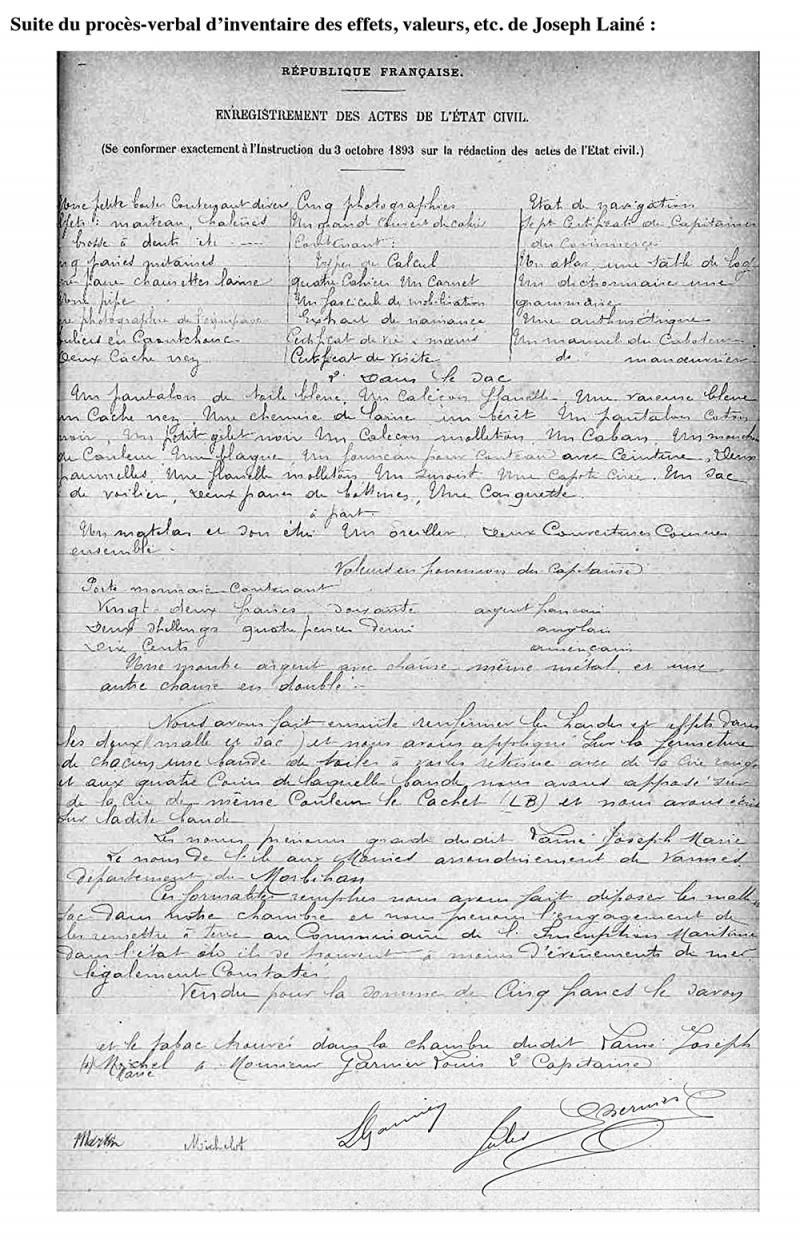 Suite du procès-verbal d’inventaire des effets, valeurs, etc. de Joseph Lainé :
RÉPUBLIQUE FRANÇAISE.
ENREGISTREMENT DES ACTES DE L'ÉTAT CIVIL.
(Se conformer exactement à l'Instruction du 3 octobre 1893 sur la rédaction des actes de l'Etat civil.)
Une petite boites Contenant divers
effets : marteau,
brosse à dents etc
paires mitaines
paire chaussettes laine
Une pipe
photographie de l'équipage
en Caoutchouc
Deux Cache nez
Cinq photographies
Un grand de cahier
Contenant :
de Calcul
quatre Cahier Un Carnet
Un fascicul de mobilisation
Extrait de naissance
Certificat de vie & mœurs
Certificat de Visite
Etat de navigation
Sept Certificats de Capitaines
du Commerce
Un atlas une table de log
Un dictionnaire une
grammaire
Une arithmétique
Un manuel du Caboteur
de manœuvrier
2° Dans le Sac
Un pantalon de toile bleue, Un Caleçon flanelle, Une vareuse bleue
un Cache nez, Une chemise de laine un béret Un pantalon Coton
noir, Un petit gilet noir Un Caleçon molleton, Un Caban, Un mouchoir
de Couleur Une blague, Un fourreau pour Couteau avec Ceinture, Deux
paumelles, Une flanelle molleton Un Suroist Une Capote Cirée. Un Sac
de voilier, Deux paires de bottines, Une Casquette.
à part
Un matelas et son étui Un Oreiller. Deux Couvertures Cousues
ensemble.
Valeurs en possession du Capitaine
Porte monnaie Contenant
Vingt deux francs soixante argent francais
Deux Shellings quatre pences demi anglais
Cents américain
Une montre argent avec chaine même métal et une
autre chaine en doublé.
Nous avons fait ensuite renfermer les hardes et effets dans
les deux (malle et sac) et nous avons appliqué sur la fermeture
de chacun une bande de toiles à voiles retenue avec de la cire rouge
et aux quatre Coins de laquelle bande nous avons apposé sur
de la Cire de même Couleur le Cachet (LB) et nous avons écrit
sur ladite bande
Les noms prénoms grade dudit Lainé Joseph Marie
Le nom de l'ile aux Moines arrondissement de Vannes
département du Morbihan
Ces formalités remplies nous avons fait déposer les malle
sac dans notre chambre et nous prenons l'engagement de
les remettre à terre au Commissaire de l'Inscription Maritime
dans l'état où ils se trouvent à moins d'évènements de mer
légalement Constatés
Vendu pour la Somme de Cinq francs le savon
et le tabac trouvés dans la chambre dudit Lainé Joseph
Michel à Monsieur Garnier Louis 2e Capitaine
Marie
Michelot
LGarnier
Jules